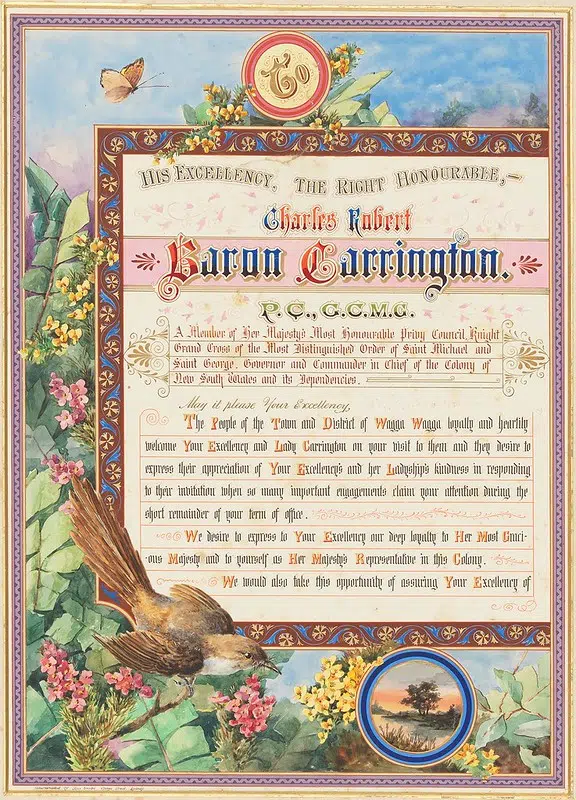 To
His Excellency, The Right Honourable,—
Charles Robert
Baron Carrington.
P.C., G.C.M.G.
A Member of Her Majesty's Most Honourable Privy Council, Knight
Grand Cross of the Most Distinguished Order of Saint Michael and
Saint George, Governor and Commander in Chief of the Colony of
New South Wales and its Dependencies.
May it please Your Excellency,
The People of the Town and District of Wagga Wagga loyally and heartily
welcome Your Excellency and Lady Carrington on your visit to them and they desire to
express their appreciation of Your Excellency's and her Ladyship's kindness in responding
to their invitation when so many important engagements claim your attention during the
short remainder of your term of office.
We desire to express to Your Excellency our deep loyalty to Her Most Graci-
-ous Majesty and to yourself as Her Majesty's Representative in this Colony.
We would also take this opportunity of assuring Your Excellency of